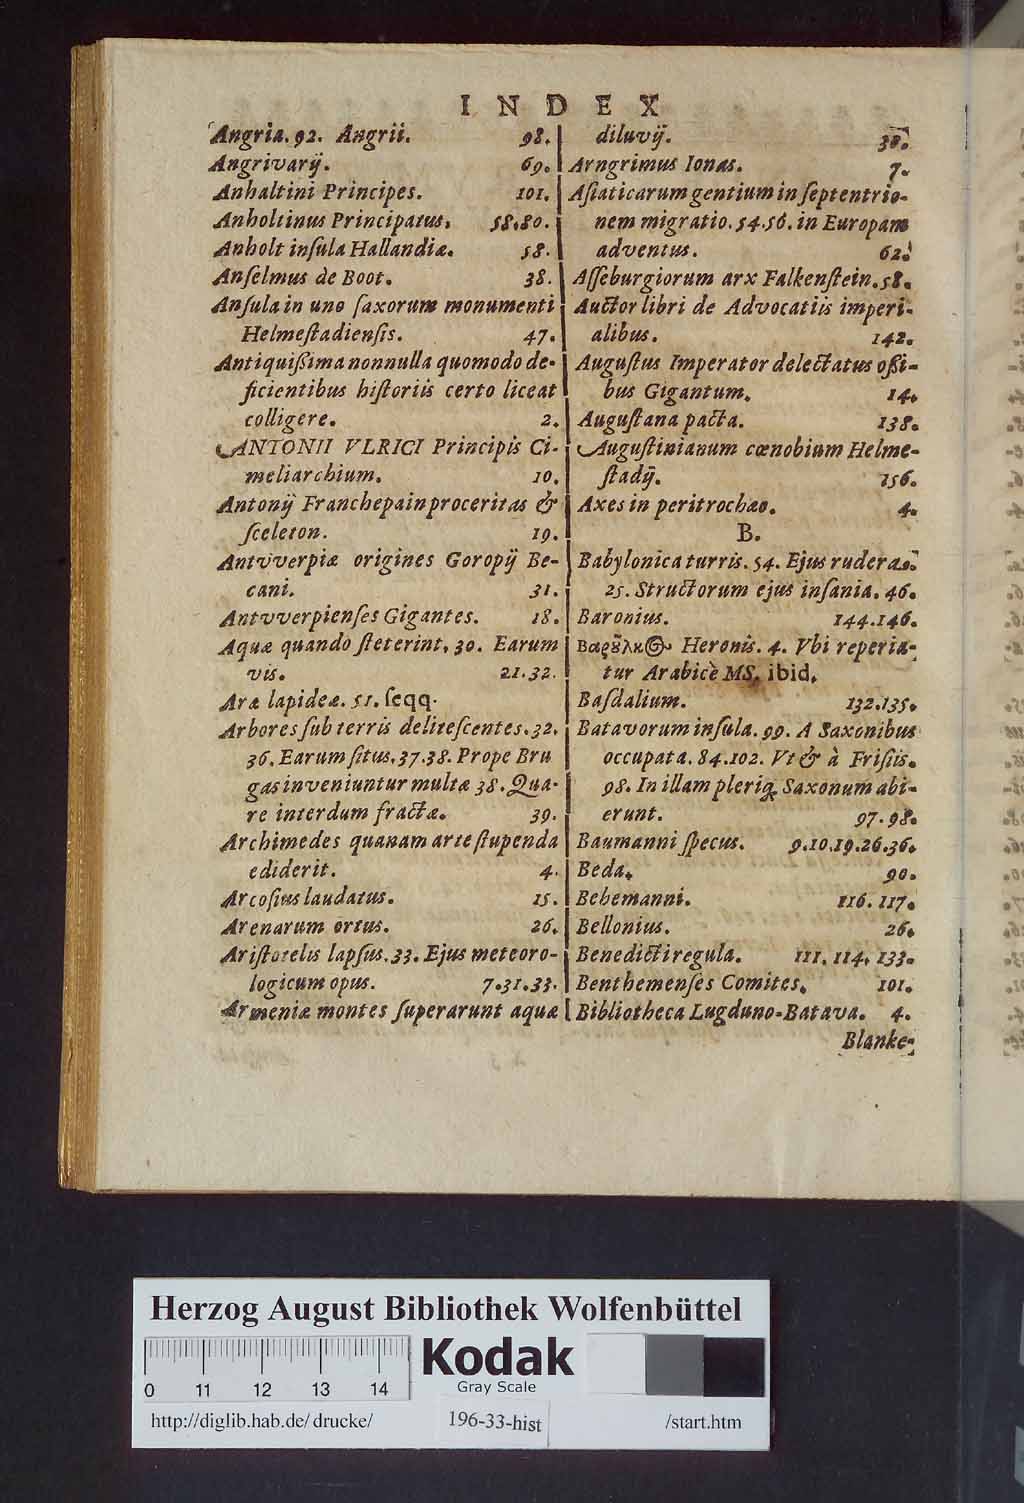 INDEX
Angria. 92. Angrii. 98.
Angrivarij. 69.
Anhaltini Principes. 101.
Anholtinus Principatus. 58.80.
Anholt inſula Hallandiæ. 58.
Anſelmus de Boot. 38.
Anſula in uno ſaxorum monumenti
Helmeſtadienſis. 47.
Antiquißima nonnulla quomodo de-
ficientibus hiſtoriis certo liceat
colligere. 2.
ANTONII VLRICI Principis Ci-
meliarchium. 10.
Antonij Franchepain proceritas &
ſceleton. 19.
Antvverpiæ origines Goropij Be-
cani. 31.
Antvverpienſes Gigantes. 18.
Aquæ quando ſteterint. 30. Earum
vis. 21.32.
Aræ lapideæ. 51. ſeqq.
Arbores ſub terris deliteſcentes. 32.
36. Earum ſitus. 37.38. Prope Bru
gas inveniuntur multæ 38. Qua-
re interdum fractæ. 39.
Archimedes quanam arte ſtupenda
ediderit. 4.
Arcoſius laudatus. 15.
Arenarum ortus. 26.
Ariſtotelis lapſus. 33. Ejus meteoro-
logicum opus. 7.31.33.
Armeniæ montes ſuperarunt aquæ
diluvij. 30.
Arngrimus Ionas. 7.
Aſiaticarum gentium in ſeptentrio-
nem migratio. 54.56. in Europam
adventus. 62.
Aſſeburgiorum arx Falkenſtein. 58.
Auctor libri de Advocatiis imperi-
alibus. 142.
Auguſtus Imperator delectatus oßi-
bus Gigantum. 14.
Auguſtana pacta. 138.
Auguſtinianum cœnobium Helme-
ſtadij. 156.
Axes in peritrochæo. 4.
B.
Babylonica turris. 54. Ejus rudera.
25. Structorum ejus inſania. 46.
Baronius. 144.146.
Βαρȣλκ Heronis. 4. Vbi reperia-
tur Arabicè MS. ibid.
Baſdalium. 132.135.
Batavorum inſula. 99. A Saxonibus
occupata. 84.102. Vt & à Friſiis.
98. In illam pleriq; Saxonum abi-
erunt. 97.98.
Baumanni ſpecus. 9.10.19.26.36.
Beda. 90.
Behemanni. 116. 117.
Bellonius. 26.
Benedicti regula. 111. 114. 133.
Benthemenſes Comites. 101.
Bibliotheca Lugduno-Batava. 4.
Blanke-
Herzog August Bibliothek Wolfenbüttel
Kodak
Gray Scale
0 11 12 13 14
http://diglib.hab.de/drucke/ 196-33-hist /start.htm